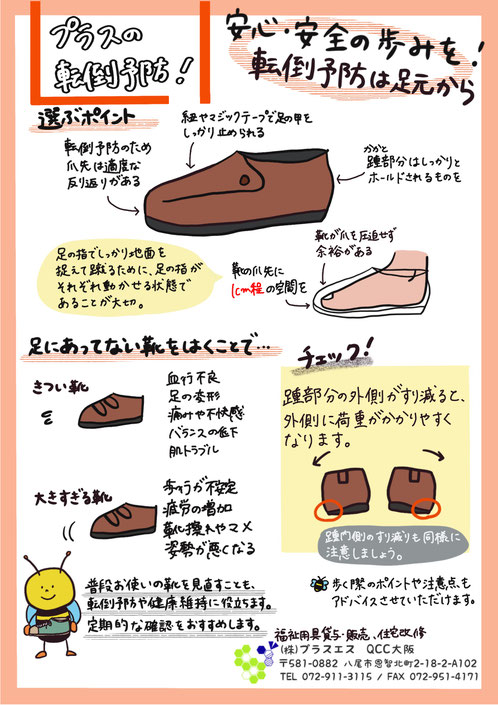 プラスの
転倒予防!
安心・安全の歩みを!
転倒予防は足元から
選ぶポイント
紐やマジックテープで足の甲を
しっかり止められる
転倒予防のため
爪先は適度な
反り返りがある
かかと
踵部分はしっかりと
ホールドされるものを
靴が爪を圧迫せず
余裕がある
足の指でしっかり地面を
捉えて蹴るために、足の指が
それぞれ動かせる状態で
あることが大切。
靴の爪先に
1cm程の空間を
足にあってない靴をはくことで…
きつい靴
血行不良
足の変形
痛みや不快感
バランスの低下
肌トラブル
大きすぎる靴
歩行が不安定
疲労の増加
靴擦れやマメ
姿勢が悪くなる
チェック!
踵部分の外側がすり減ると、
外側に荷重がかかりやすく
なります。
踵内側のすり減りも同様に
注意しましょう。
普段お使いの靴を見直すことも、
転倒予防や健康維持に役立ちます。
定期的な確認をおすすめします。
歩く際のポイントや注意点も
アドバイスさせていただけます。
福祉用具貸与・販売、住宅改修
(株)プラスエス QCC大阪
〒581-0882 八尾市恩智北町2-18-2-A102
TEL 072-911-3115 / FAX 072-951-4171